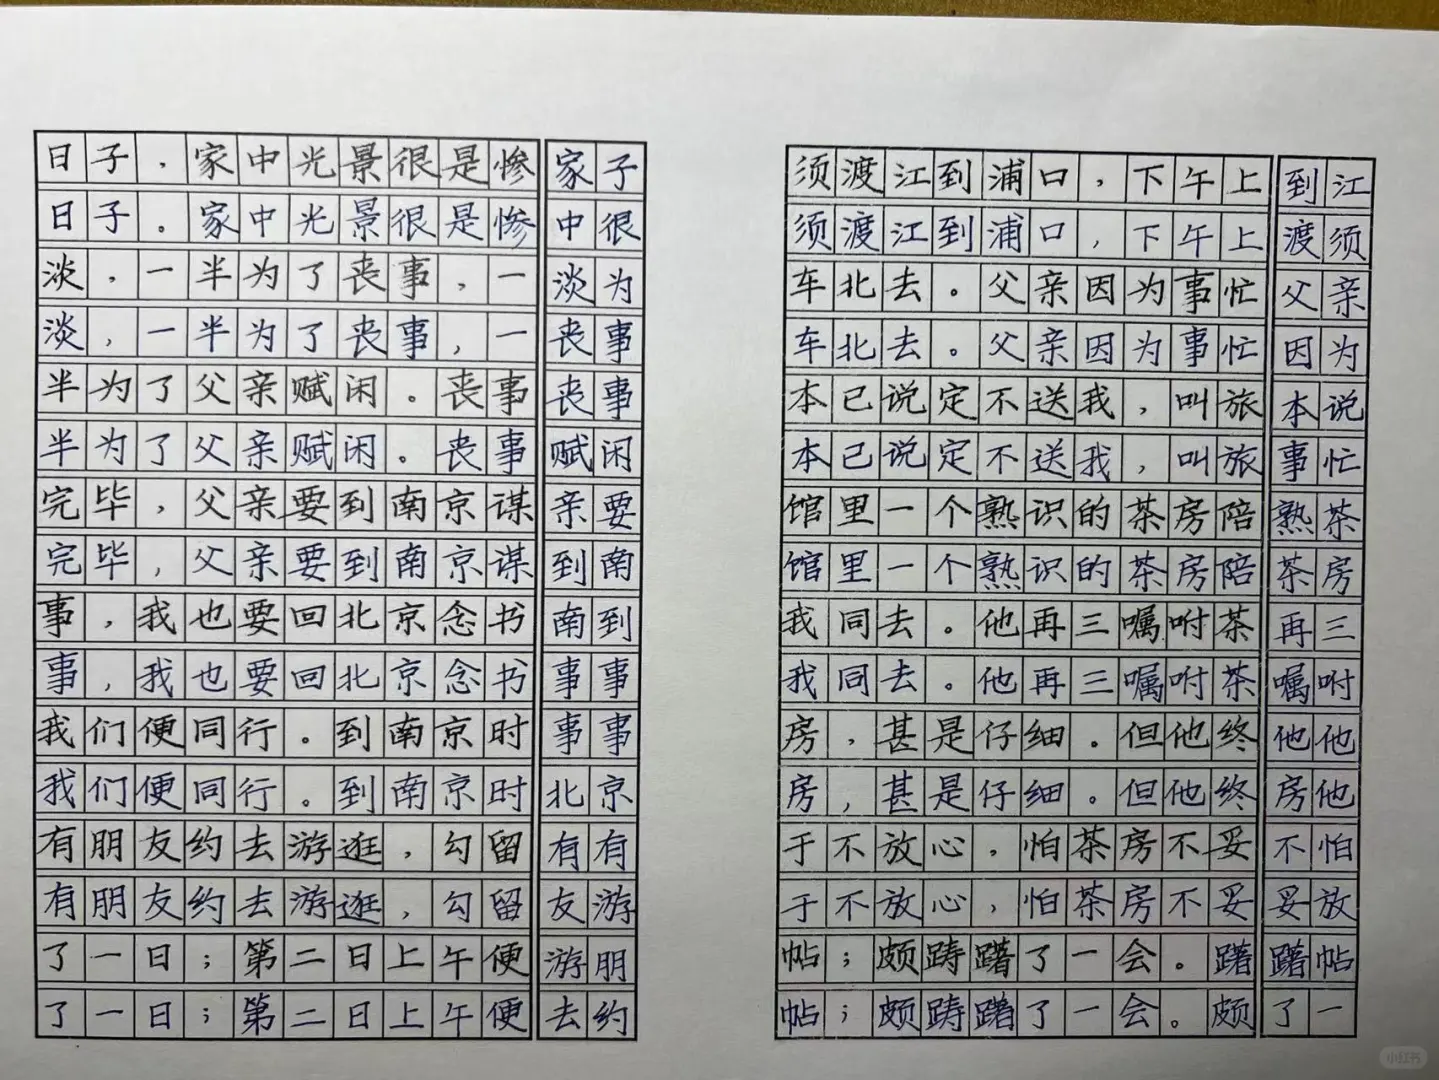 日子，家中光景很是惨 家子
日子。家中光景很是惨 中很
淡，一半为了丧事，一 淡为
淡，一半为了丧事，一 丧事
半为了父亲赋闲。丧事 丧事
半为了父亲赋闲。丧事 赋闲
完毕，父亲要到南京谋 亲要
完毕，父亲要到南京谋 到南
事，我也要回北京念书 南到
事，我也要回北京念书 事事
我们便同行。到南京时 事事
我们便同行。到南京时 北京
有朋友约去游逛，勾留 有有
有朋友约去游逛，勾留 友游
了一日；第二日上午便 游朋
了一日；第二日上午便 去约
须渡江到浦口，下午上 到江
须渡江到浦口，下午上 渡须
车北去。父亲因为事忙 父亲
车北去。父亲因为事忙 因为
本已说定不送我，叫旅 本说
本已说定不送我，叫旅 事忙
馆里一个熟识的茶房陪 熟茶
馆里一个熟识的茶房陪 茶房
我同去。他再三嘱咐茶 再三
我同去。他再三嘱咐茶 嘱咐
房，甚是仔细。但他终 他他
房，甚是仔细。但他终 房他
于不放心，怕茶房不妥 不怕
于不放心，怕茶房不妥 妥放
帖；颇踌躇了一会。躇 躇帖
帖；颇踌躇了一会。颇 了一
小红书